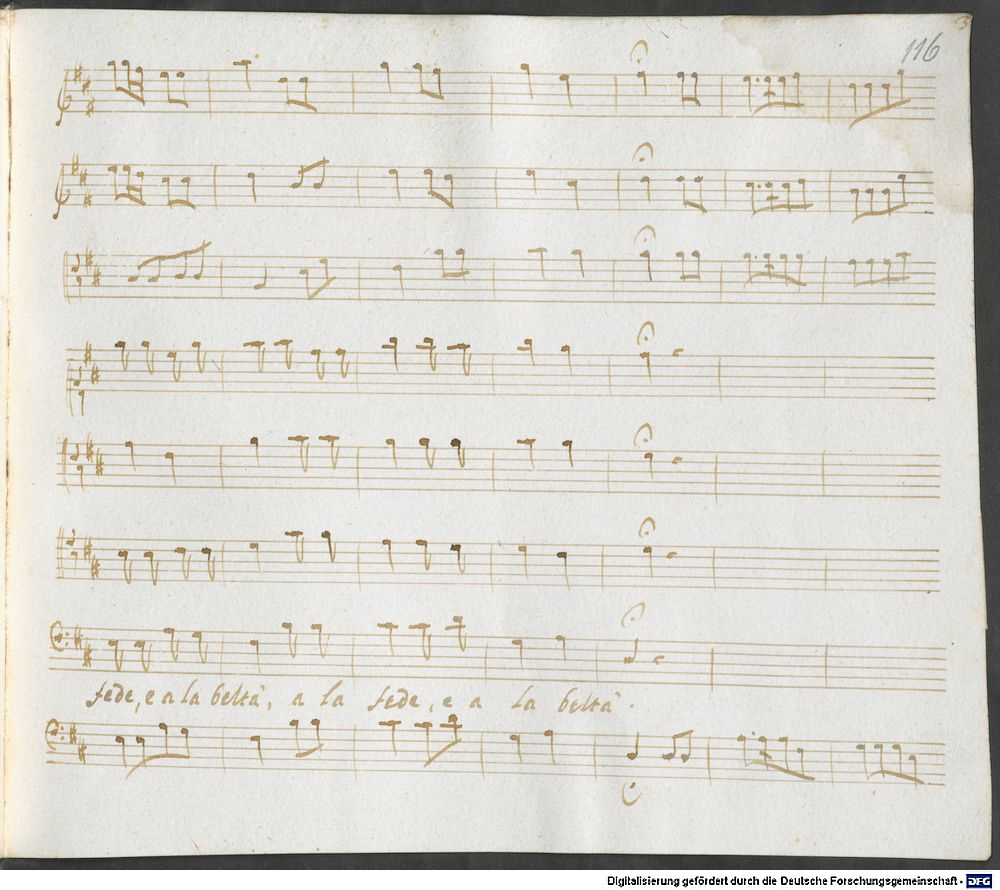 116
fede, e a la beltà, a la fede, e a la beltà.
Digitalisierung gefördert durch die Deutsche Forschungsgemeinschaft - DFG